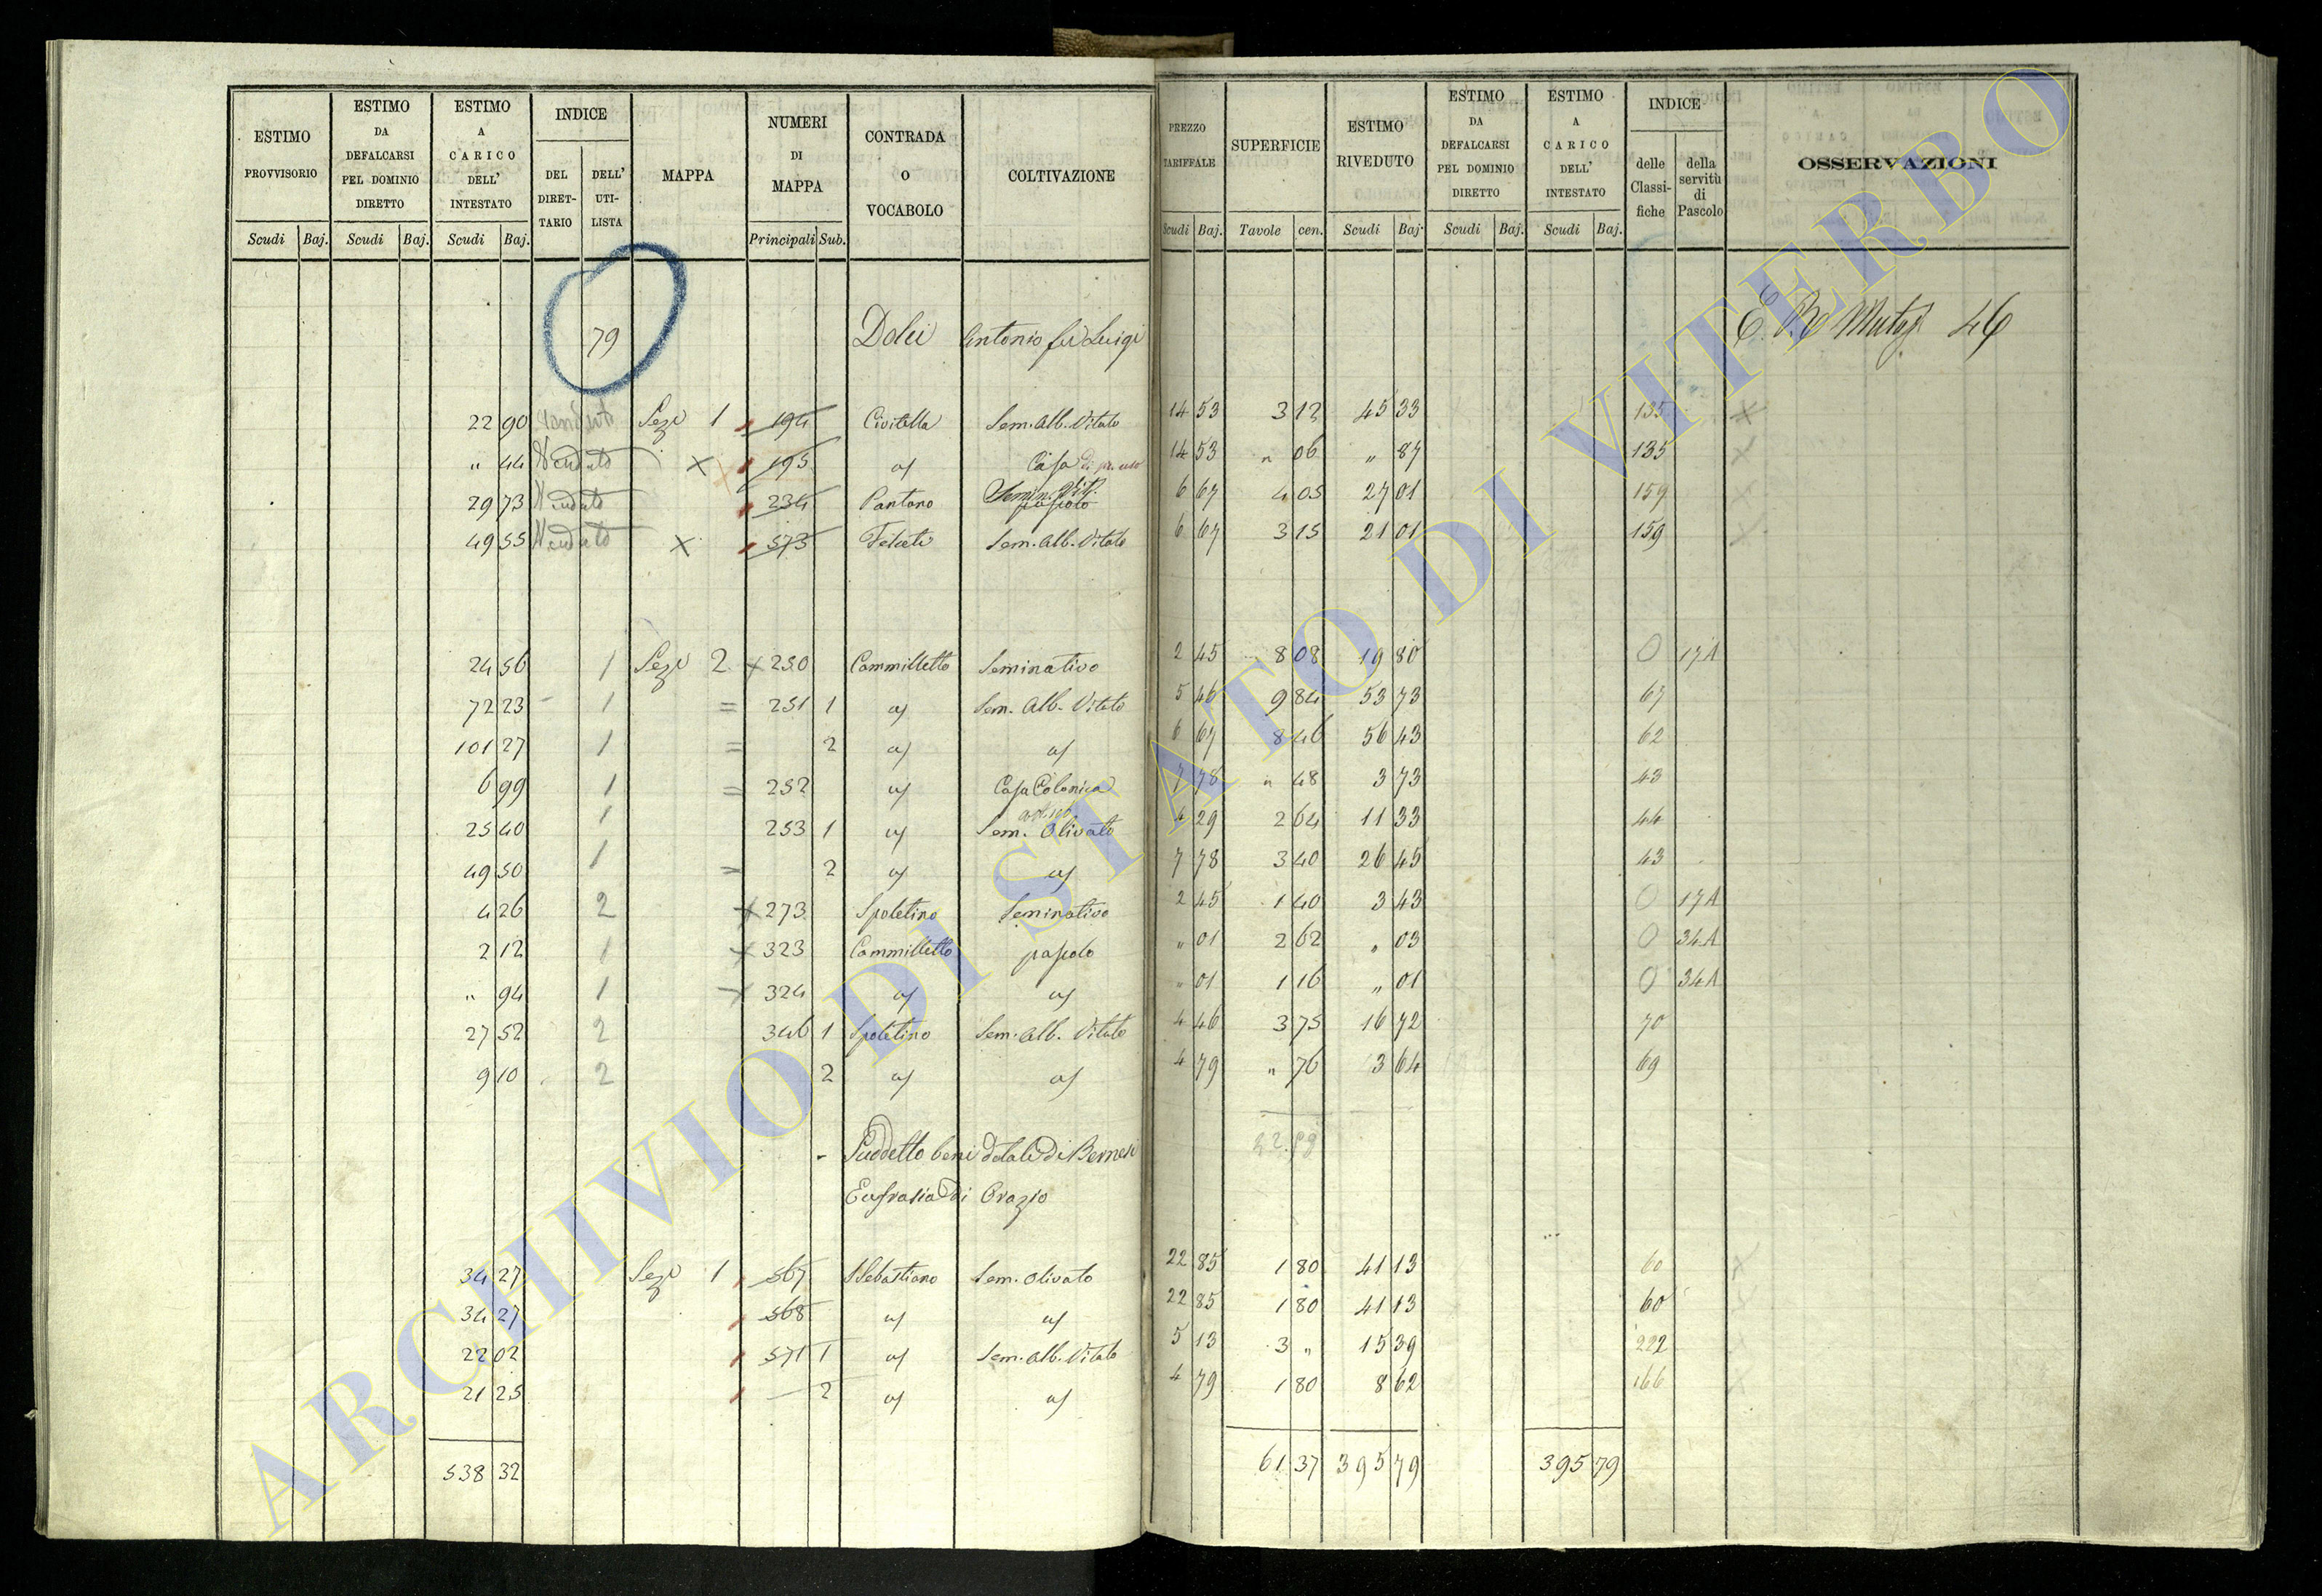 ESTIMO PROVVISORIO Scudi Baj.
ESTIMO DA DEFALCARSI PEL DOMINIO DIRETTO Scudi Baj.
ESTIMO A CARICO DELL' INTESTATO Scudi Baj.
INDICE DEL DIRETTARIO DELL' UTILISTA
MAPPA
NUMERI DI MAPPA Principali Sub.
CONTRADA O VOCABOLO
COLTIVAZIONE
PREZZO TARIFFALE Scudi Baj.
SUPERFICIE Tavole cen.
ESTIMO RIVEDUTO Scudi Baj.
ESTIMO DA DEFALCARSI PEL DOMINIO DIRETTO Scudi Baj.
ESTIMO A CARICO DELL' INTESTATO Scudi Baj.
INDICE delle Classifiche della servitù di Pascolo
OSSERVAZIONI
79 Dolci Antonio fu Luigi Mutaz. 46
22 90 Sezе 1 194 Civitella Sem. Alb. Vitato 14 53 3 12 45 33 135 X
" 44 Venduto X 195 a/ Casa 14 53 " 06 " 87 135 X
29 73 Venduto 234 Pantano Semin. Vit. 6 67 4 05 27 01 159 X
49 55 Venduto X 573 Sem. Alb. Vitato 6 67 3 15 21 01 159 X
24 56 1 Sezе 2 X 250 Cammilletto Seminativo 2 45 8 08 19 80 0 17A
72 23 1 = 251 1 a/ Sem. Alb. Vitato 5 46 9 84 53 73 67
101 27 1 = 2 a/ a/ 6 67 8 46 56 43 62
6 99 1 = 252 a/ Casa Colonica 7 78 " 48 3 73 43
25 40 1 253 1 a/ Sem. Olivato 4 29 2 64 11 33 44
49 50 1 = 2 a/ a/ 7 78 3 40 26 45 43
4 26 2 X 273 Spoletino Seminativo 2 45 1 40 3 43 0 17A
2 12 1 X 323 Cammilletto pascolo " 01 2 62 " 03 0 34A
" 94 1 X 324 a/ a/ " 01 1 16 " 01 0 34A
27 52 2 346 1 Spoletino Sem. Alb. Vitato 4 46 3 75 16 72 70
9 10 2 2 a/ a/ 4 79 " 76 3 64 69
Suddetto beni dotali di Bernesi
Eufrasia di Orazio
34 27 Sezе 1 567 S Sebastiano Sem. Olivato 22 85 1 80 41 13 60
34 27 568 a/ a/ 22 85 1 80 41 13 60
22 02 571 1 a/ Sem. Alb. Vitato 5 13 3 " 15 39 222
21 25 2 a/ a/ 4 79 1 80 8 62 166
538 32 61 37 395 79 395 79
ARCHIVIO DI STATO DI VITERBO